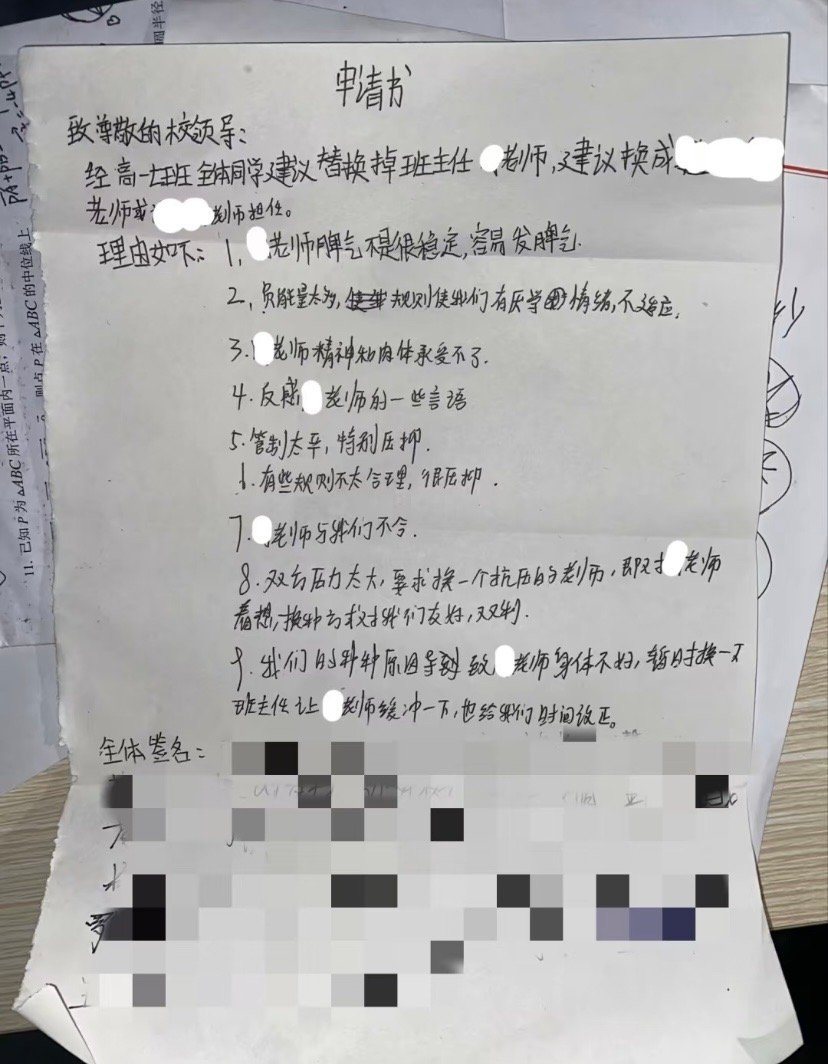 申请书
致尊敬的校领导：
经高一七班全体同学建议替换掉班主任 老师，建议换成
老师或 老师担任。
理由如下：1. 老师脾气不是很稳定，容易发脾气.
2. 负能量太多，规则使我们有厌学情绪，不适应.
3. 老师精神和肉体承受不了.
4. 反感 老师的一些言语
5. 管制太平，特别压抑.
6. 有些规则不太合理，很压抑.
7. 老师与我们不合.
8. 双方压力太大，要求换一个抗压的老师，即对 老师
着想，换种方式对我们友好，双利.
9. 我们的种种原因导致 老师身体不好，暂时换一下
班主任让 老师缓冲一下，也给我们时间改正。
全体签名：
11. 已知P为△ABC所在平面内一点，
则点P在△ABC的中位线上
圆半径